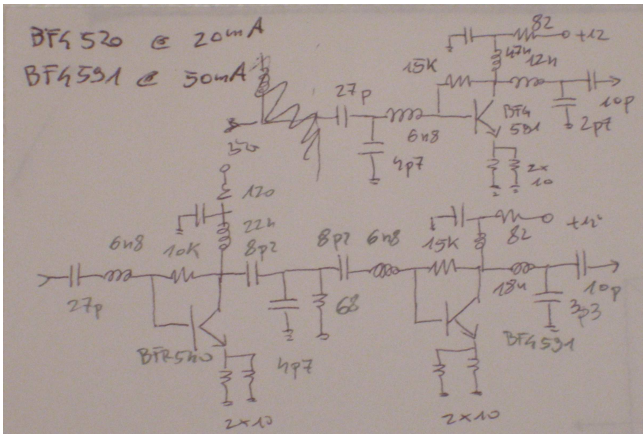 BFG520 @ 20mA
BFG591 @ 50mA
82
+12
47n
12n
15K
27p
BFG
591
10p
2p7
6n8
4p7
50
2x
10
120
22n
82
+12
6n8
10K
8p2
8p2
6n8
15K
27p
68
18n
10p
3p3
BFR540
4p7
BFG591
2x10
2x10